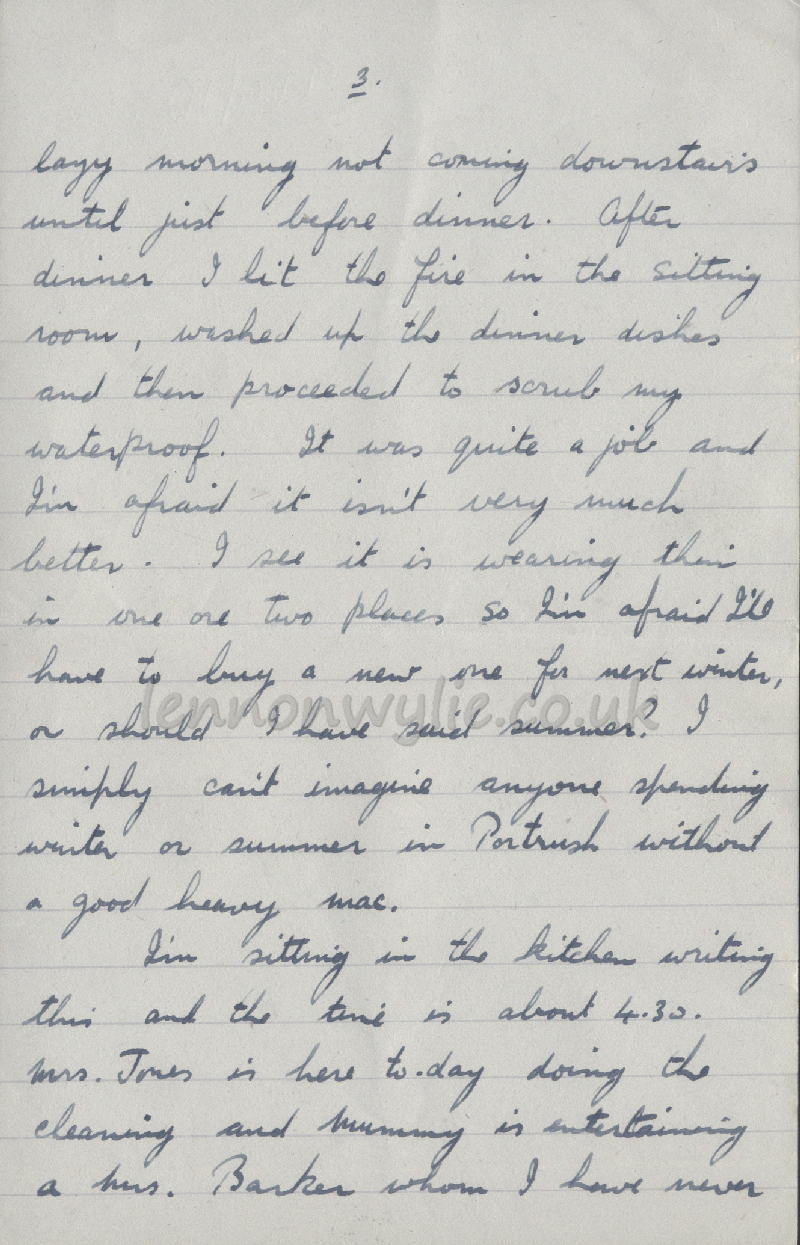 3.
lazy morning not coming downstairs
until just before dinner. After
dinner I lit the fire in the sitting
room, washed up the dinner dishes
and then proceeded to scrub my
waterproof. It was quite a job and
I'm afraid it isn't very much
better. I see it is wearing thin
in one ore two places so I'm afraid I'll
have to buy a new one for next winter,
lennonwylie.co.uk
or should I have said summer? I
simply can't imagine anyone spending
winter or summer in Portrush without
a good heavy mac.
I'm sitting in the kitchen writing
this and the time is about 4.30.
Mrs. Jones is here to-day doing the
cleaning and Mummy is entertaining
a Mrs. Barker whom I have never